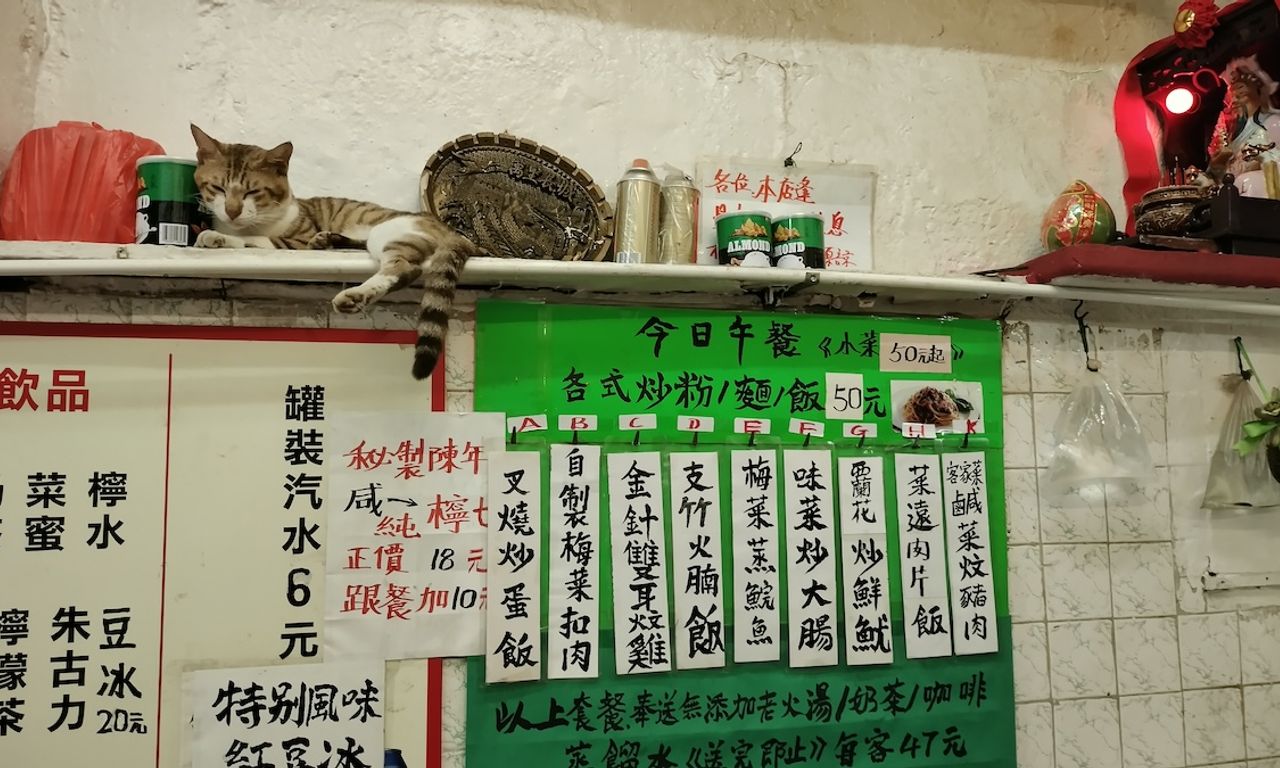 ALMOND
各位.本店逢
息
飲品
菜蜜
檸水
檸檬茶
朱古力
豆冰
20元
罐裝汽水6元
秘製陳年
咸
純
檸七
正價 18元
跟餐加10元
特别風味
紅豆冰
今日午餐《小菜50元起》
各式炒粉/麵/飯50元
A B C D E F G H K
叉燒炒蛋飯
自製梅菜扣肉
金針雙耳炆雞
支竹火腩飯
梅菜蒸鯇魚
味菜炒大腸
霸蘭花炒鮮魷
菜遠肉片飯
客家菜鹹菜炆豬肉
以上套餐奉送無添加老火湯/奶茶/咖啡
蒸餾水《送完即止》每客47元